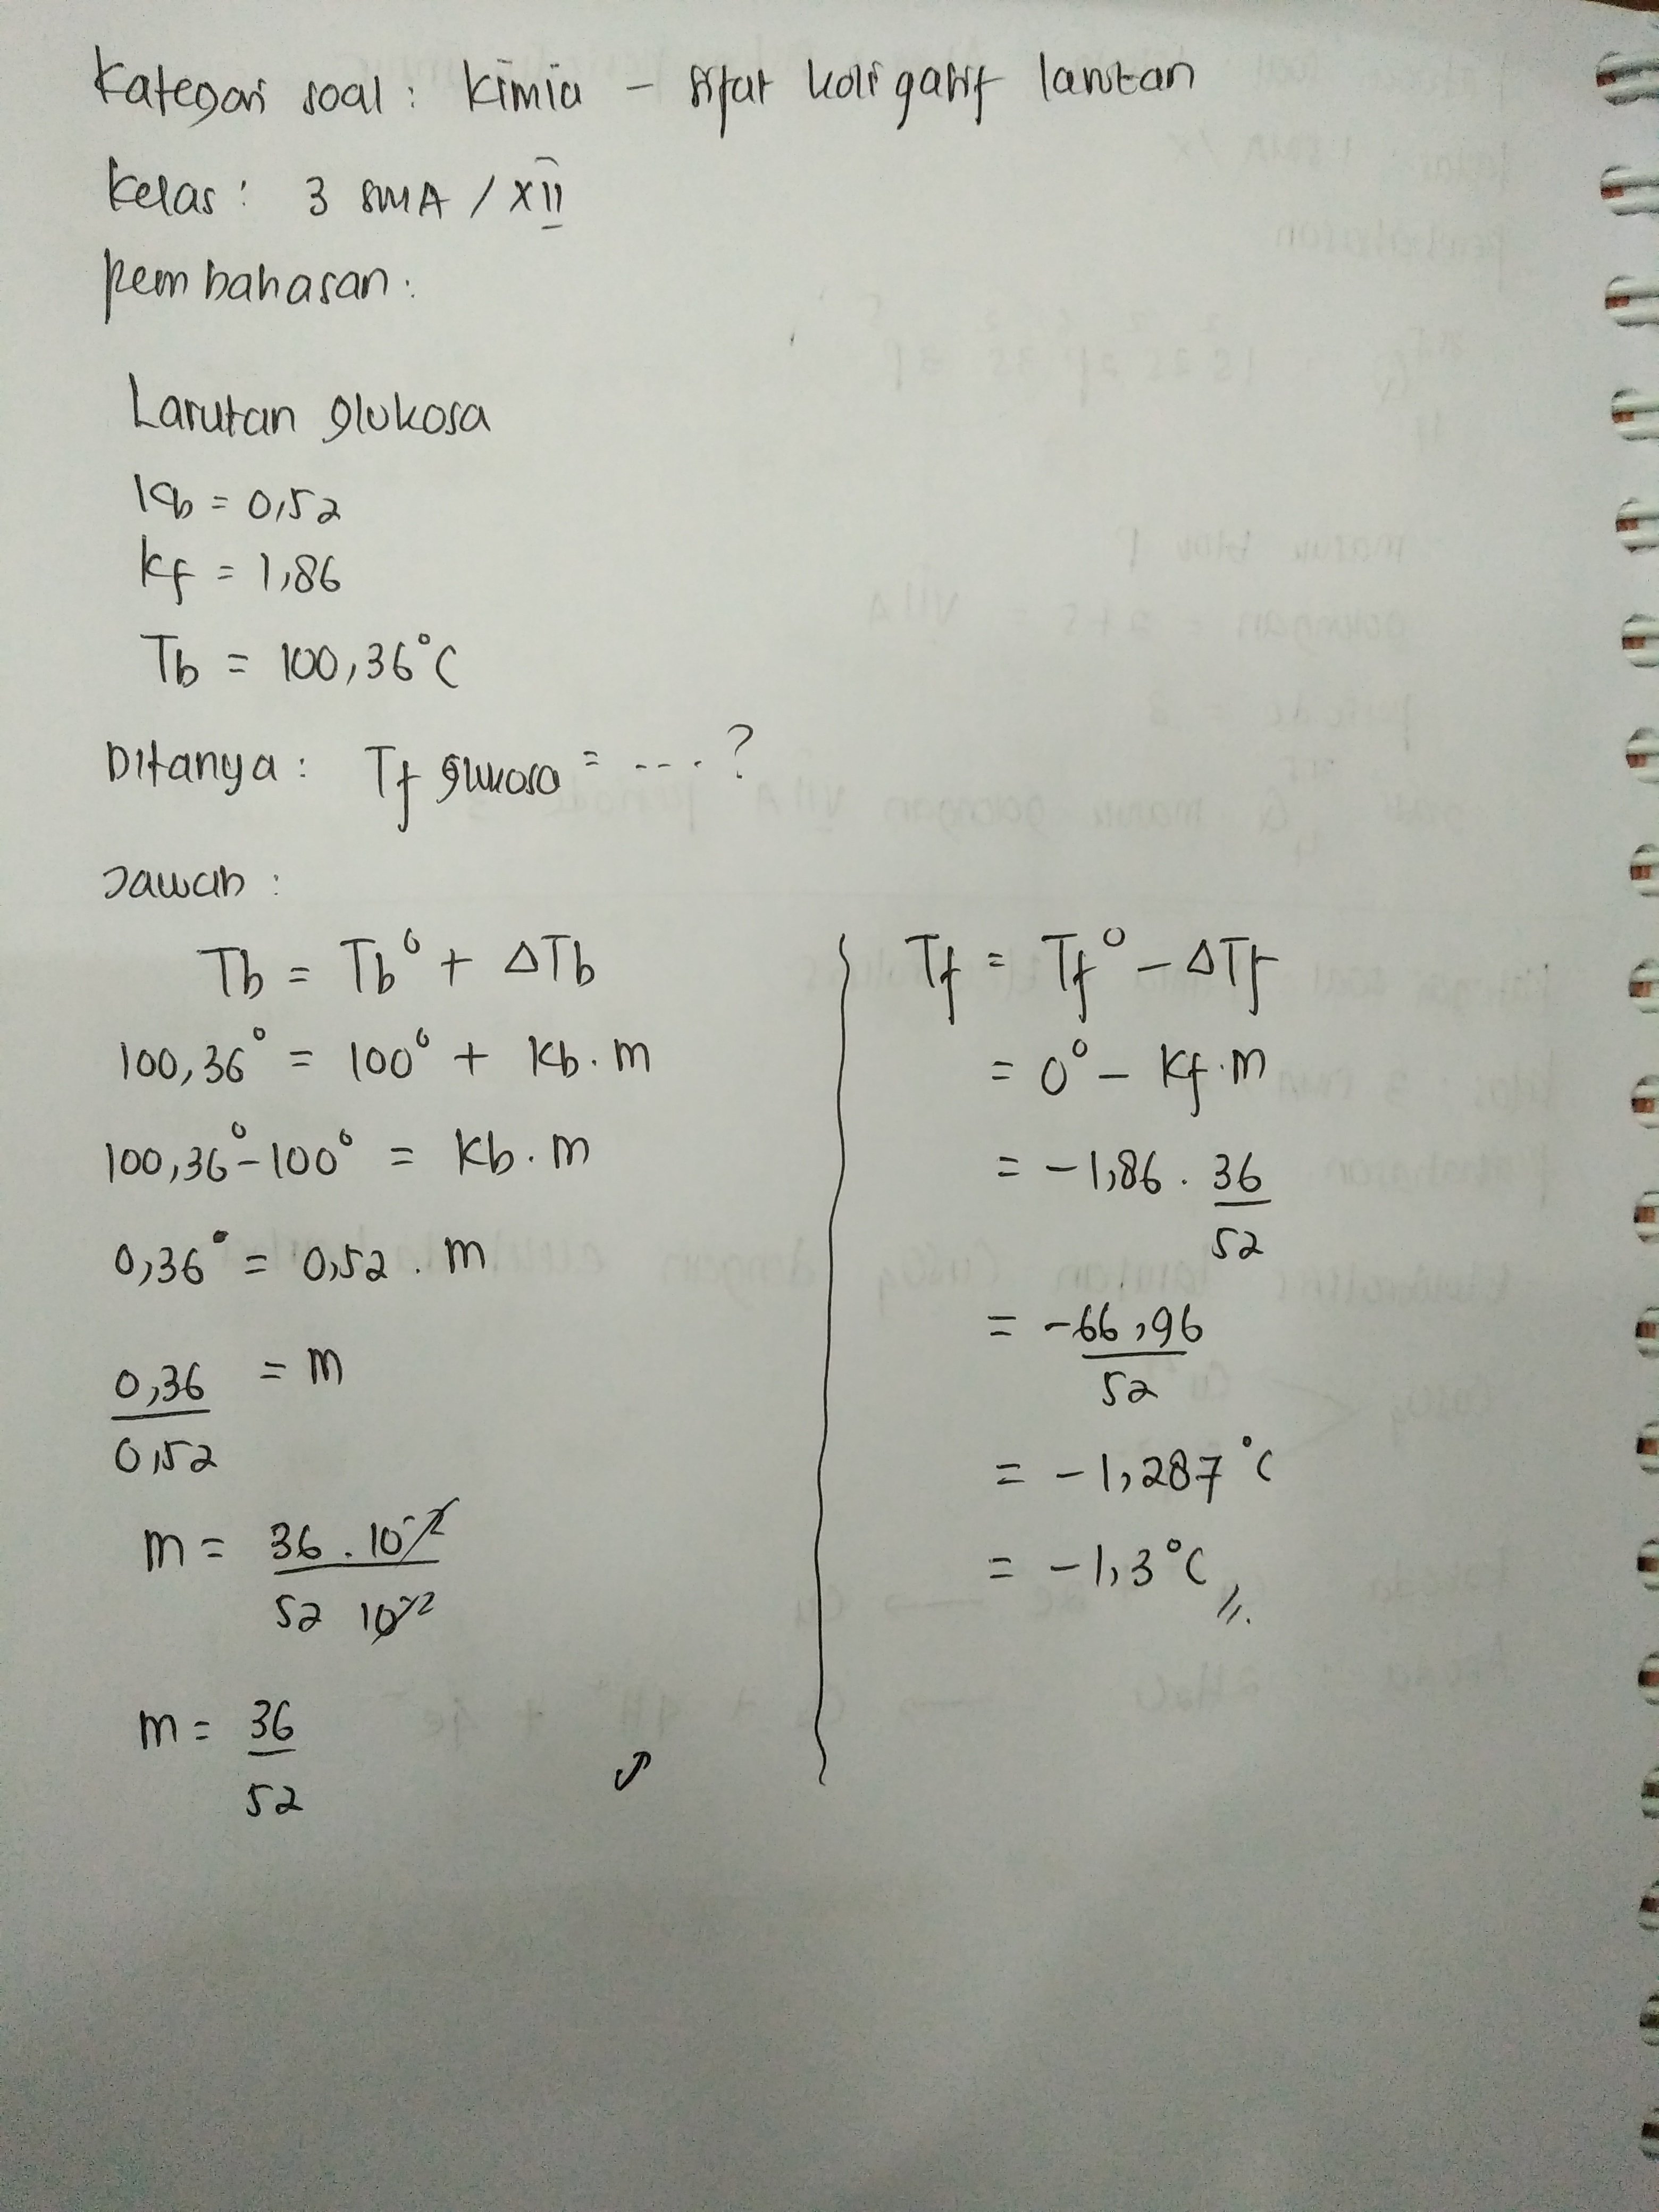 Kategori soal: Kimia – sifat koligatif larutan
Kelas: 3 SMA / XII
Pembahasan:
Larutan glukosa
Kb = 0,52
Kf = 1,86
Tb = 100,36°C
Ditanya: Tf glukosa = ....?
Jawab:
Tb = Tb° + ΔTb
100,36° = 100° + Kb.m
100,36° - 100° = Kb.m
0,36° = 0,52 . m
0,36 = m
0,52
m = 36 . 10⁻²
52 10⁻²
m = 36
52
Tf = Tf° - ΔTf
= 0° - Kf.m
= -1,86 . 36
52
= -66,96
52
= -1,287°C
= -1,3°C //.